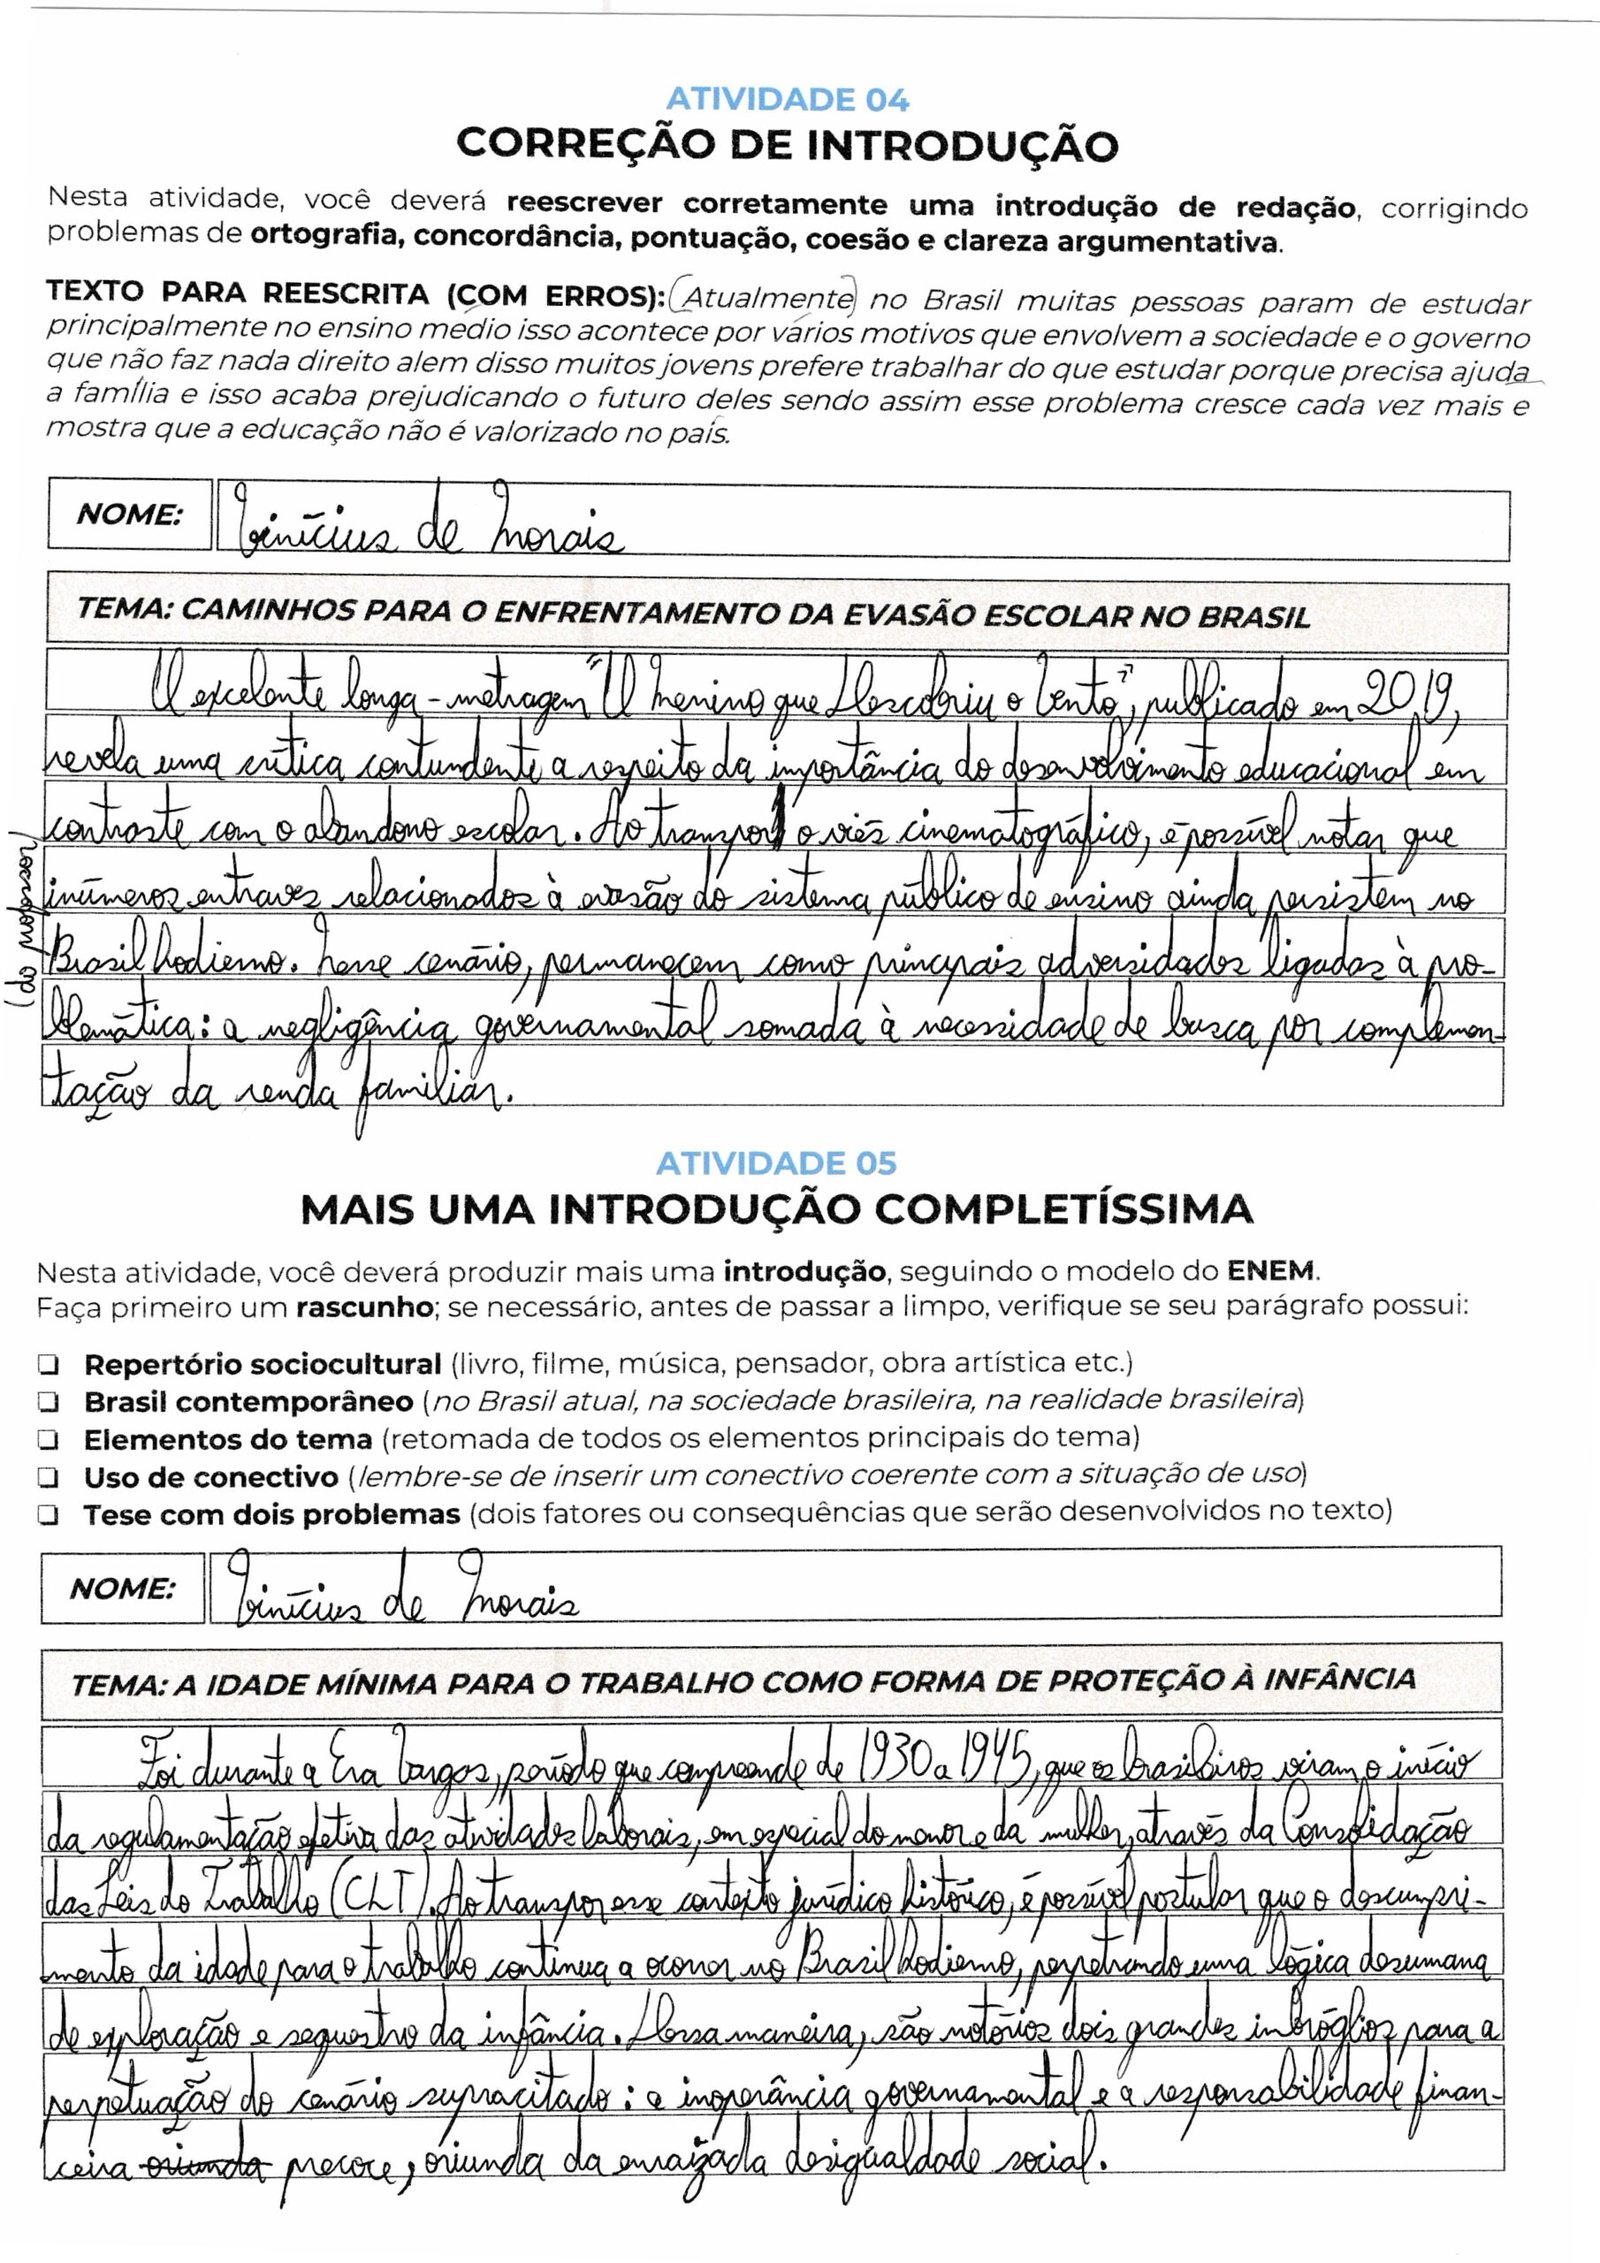 ATIVIDADE 04
CORREÇÃO DE INTRODUÇÃO
Nesta atividade, você deverá reescrever corretamente uma introdução de redação, corrigindo
problemas de ortografia, concordância, pontuação, coesão e clareza argumentativa.
TEXTO PARA REESCRITA (COM ERROS): (Atualmente) no Brasil muitas pessoas param de estudar
principalmente no ensino medio isso acontece por vários motivos que envolvem a sociedade e o governo
que não faz nada direito alem disso muitos jovens prefere trabalhar do que estudar porque precisa ajuda
a família e isso acaba prejudicando o futuro deles sendo assim esse problema cresce cada vez mais e
mostra que a educação não é valorizado no país.
NOME: Vinícius de Morais
TEMA: CAMINHOS PARA O ENFRENTAMENTO DA EVASÃO ESCOLAR NO BRASIL
O excelente longa-metragem "O Menino que Descobriu o Vento", publicado em 2019,
revela uma crítica contundente a respeito da importância do desenvolvimento educacional em
contraste com o abandono escolar. Ao transpor o viés cinematográfico, é possível notar que
inúmeros entraves relacionados à evasão do sistema público de ensino ainda persistem no
Brasil hodierno. Nesse cenário, permanecem como principais adversidades ligadas à pro-
blemática: a negligência governamental somada à necessidade de busca por complemen-
tação da renda familiar.
(do professor)
ATIVIDADE 05
MAIS UMA INTRODUÇÃO COMPLETÍSSIMA
Nesta atividade, você deverá produzir mais uma introdução, seguindo o modelo do ENEM.
Faça primeiro um rascunho; se necessário, antes de passar a limpo, verifique se seu parágrafo possui:
❏ Repertório sociocultural (livro, filme, música, pensador, obra artística etc.)
❏ Brasil contemporâneo (no Brasil atual, na sociedade brasileira, na realidade brasileira)
❏ Elementos do tema (retomada de todos os elementos principais do tema)
❏ Uso de conectivo (lembre-se de inserir um conectivo coerente com a situação de uso)
❏ Tese com dois problemas (dois fatores ou consequências que serão desenvolvidos no texto)
NOME: Vinícius de Morais
TEMA: A IDADE MÍNIMA PARA O TRABALHO COMO FORMA DE PROTEÇÃO À INFÂNCIA
Foi durante a Era Vargas, período que compreende de 1930 a 1945, que os brasileiros viram o início
da regulamentação efetiva das atividades laborais, em especial do menor e da mulher, através da Consolidação
das Leis do Trabalho (CLT). Ao transpor esse contexto jurídico histórico, é possível postular que o descumpri-
mento da idade para o trabalho continua a ocorrer no Brasil hodierno, perpetrando uma lógica desumana
de exploração e sequestro da infância. Dessa maneira, são notórios dois grandes imbróglios para a
perpetuação do cenário supracitado: a inoperância governamental e a responsabilidade finan-
ceira oriunda precoce, oriunda da enraizada desigualdade social.